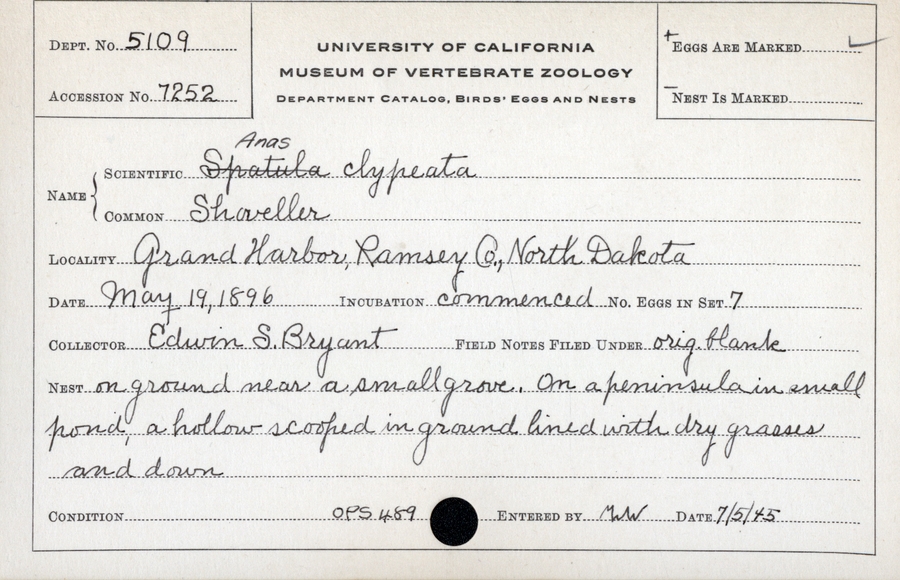 DEPT. No. 5109
ACCESSION No. 7252
UNIVERSITY OF CALIFORNIA
MUSEUM OF VERTEBRATE ZOOLOGY
DEPARTMENT CATALOG, BIRDS' EGGS AND NESTS
+ EGGS ARE MARKED ✓
– NEST IS MARKED
Anas
NAME { SCIENTIFIC Spatula clypeata
COMMON Shoveller
LOCALITY Grand Harbor, Ramsey Co., North Dakota
DATE May 19, 1896 INCUBATION commenced No. EGGS IN SET 7
COLLECTOR Edwin S. Bryant FIELD NOTES FILED UNDER orig. blank
NEST on ground near a small grove. On a peninsula in small
pond, a hollow scooped in ground lined with dry grasses
and down
CONDITION OPS 489 ENTERED BY DATE 7/5/45